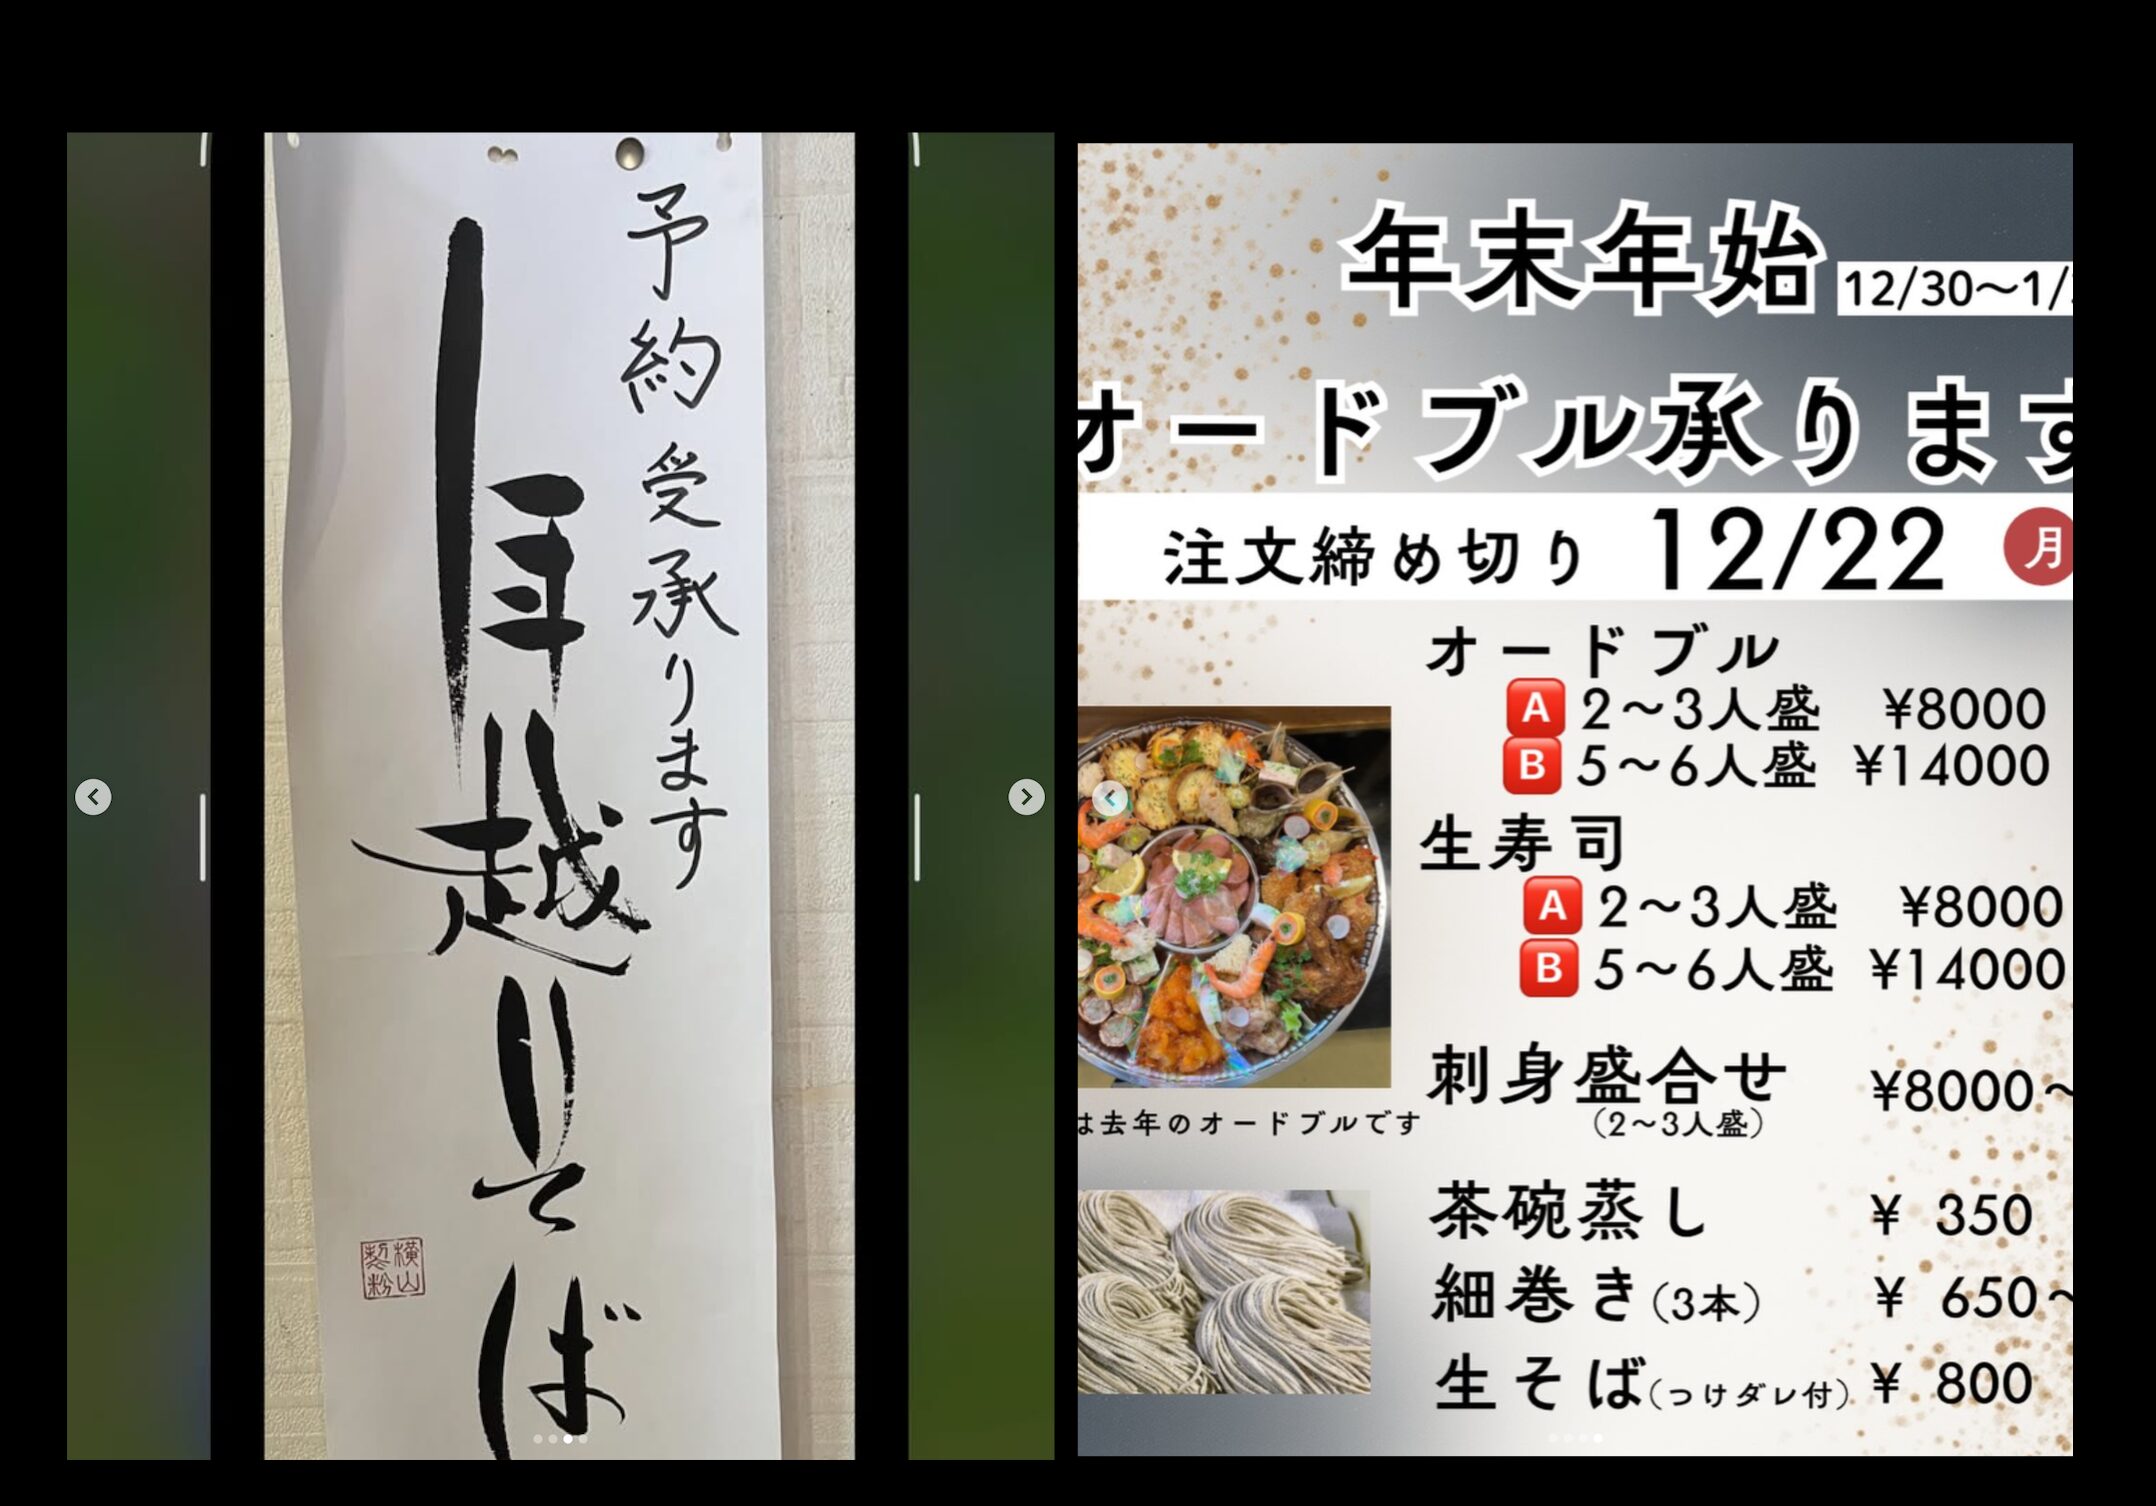 予約受承ります
年越りそば
横山
製粉
年末年始
12/30〜1/
オードブル承ります
注文締め切り 12/22 月
オードブル
A 2〜3人盛 ¥8000
B 5〜6人盛 ¥14000
生寿司
A 2〜3人盛 ¥8000
B 5〜6人盛 ¥14000
刺身盛合せ ¥8000〜
(2〜3人盛)
は去年のオードブルです
茶碗蒸し ¥ 350
細巻き(3本) ¥ 650〜
生そば(つけダレ付) ¥ 800